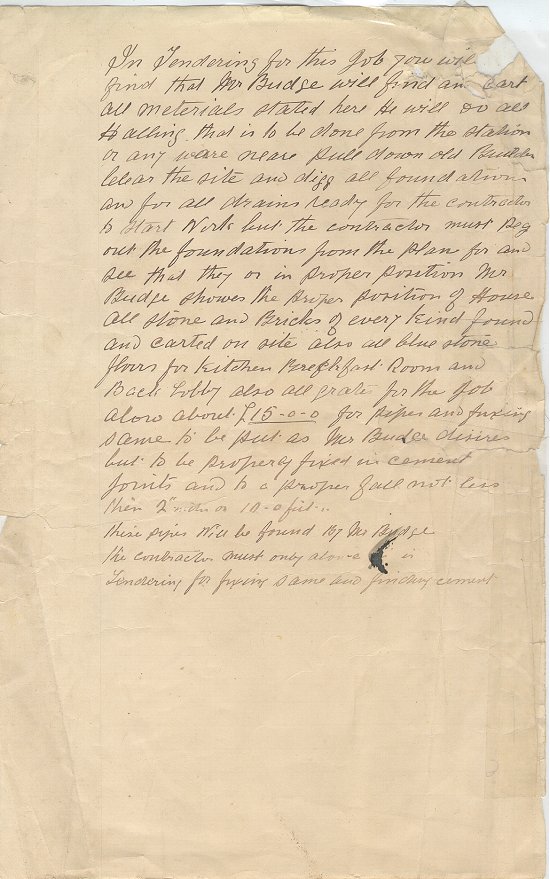 In Tendering for this Job you will
find that Mr Budge will find an cart
all materials stated here He will do all
Halling that is to be done from the station
or any ware neare pull down old Builden
Clear the site and digg all foundations
an for all drains ready for the contractor
to start Work but the contractor must Peg
out the foundations from the plan for and
see that they or in proper position Mr
Budge shows the proper position of House
all stone and Bricks of every kind found
and carted on site also all blue stone
floors for Kitchen Breckfast Room and
Back Lobby also all grate for the Job
alow about £15-0-0 for pipes and fixing
same to be put as Mr Budge desires
but to be properly fixed in cement
joints and to a proper fall not less
then 2 in 10-0 feet..
these pipes Will be found By Mr Budge
the contractor must only alow in
Tendering for fixing same and finding cement